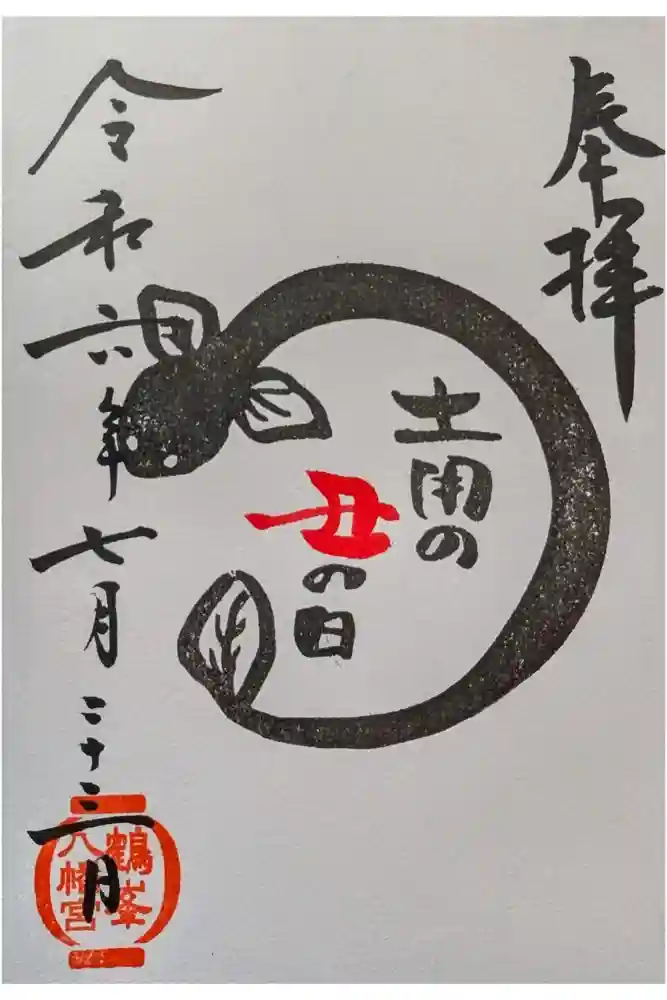 奉拝
土用の
丑の日
令和六年七月二十三日
鶴峯
八幡宮